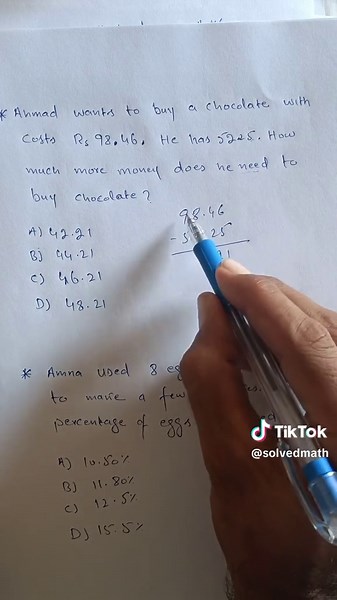 * Ahmad wants to buy a chocolate with
costs Rs 98.46. He has 5225. How
much more money does he need to
buy chocolate?
A) 42.21
B) 44.21
C) 46.21
D) 48.21
98.46
- 5 25
21
* Amna used 8
to make a few
percentage of eggs
A) 10.50%
B) 11.80%
C) 12.5%
D) 15.5%
TikTok
@solvedmath